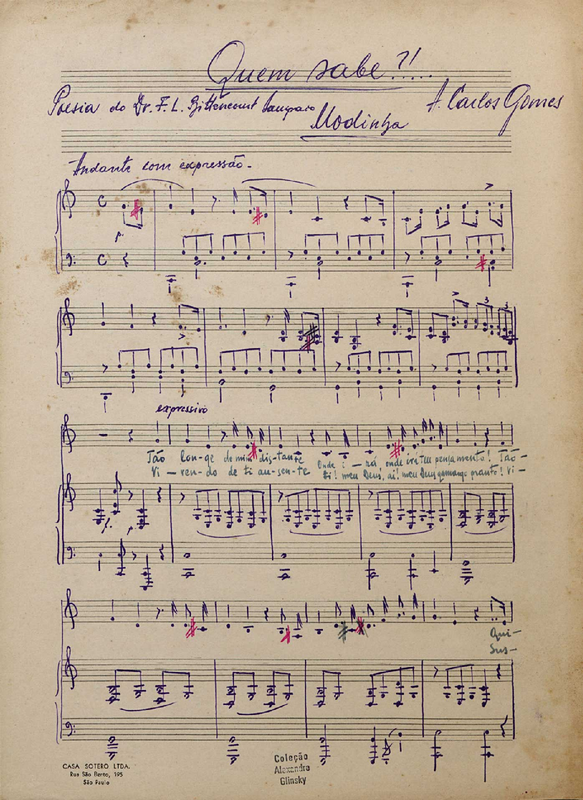 Quem sabe?!....
Poesia do Dr. F. L. Bittencourt Sampaio
A. Carlos Gomes
Modinha
Andante com expressão.
expressivo
Tão lon-ge de mim dis-tante Onde i — rá, onde irá teu pensamento! Tão-
Vi — ven-do de ti au-sen-te Ai! meu Deus, ai! meu Deus que amargo pranto! Vi-
Qui-
Sus-
CASA SOTERO LTDA.
Rua São Bento, 195
São Paulo
Coleção
Alexandre
Glinsky